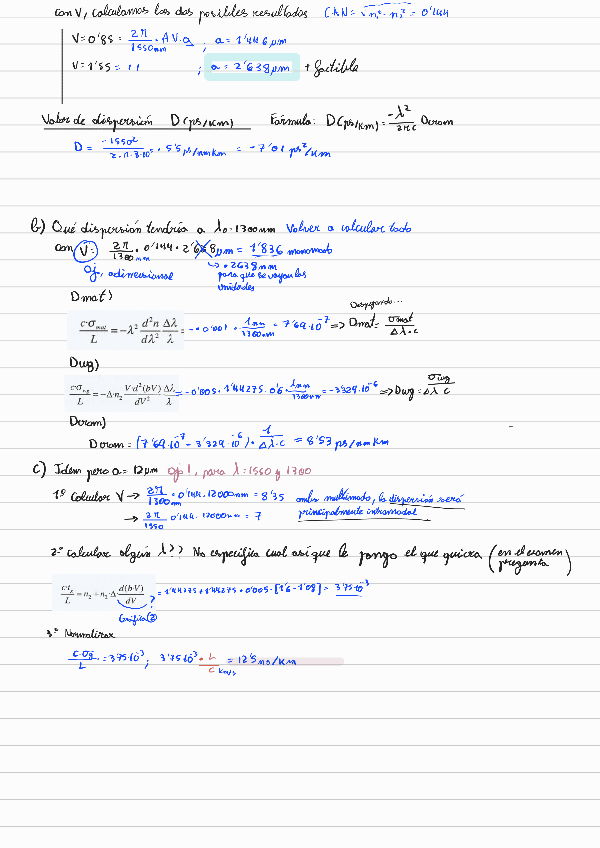 con V, calculamos los dos posibles resultados (AN = √n₁² - n₂² = 0'144
V = 0'85 = 2π/1550nm · AN · a ; a = 1'446 μm
V = 1'55 = 11 ; a = 2'638 μm + factible
Valor de dispersión D(ps/km) Fórmula: D(ps/km) = -λ²/2πc Dcrom
D = -1550²/2·π·3·10⁵ · 5'5 ps/nmkm = -7'01 ps²/km
b) Qué dispersión tendría a λ₀ = 1300nm Volver a calcular todo
con V = 2π/1300nm · 0'144 · 2'638 μm = 1'836 monomodo
Oj, adimensional → · 2638nm
para que se vayan las
unidades
Dmat)
Despejando...
c·σmat/L = -λ² d²n/dλ² Δλ/λ = -0'001 · 1nm/1300nm = 7'69·10⁻⁷ => Dmat = σmat/Δλ·c
Dwg)
c·σwg/L = -Δ·n₂ V·d²(bV)/dV² Δλ/λ = -0'005 · 1'44275 · 0'6 · 1nm/1300nm = -3'329·10⁻⁶ => Dwg = σwg/Δλ·c
Dcrom)
Dcrom = (7'69·10⁻⁷ - 3'329·10⁻⁶) · 1/Δλ·c = 8'53 ps/nmkm
c) Idem pero a = 12μm ojo!, para λ = 1550 y 1300
1º Calcular V → 2π/1300nm · 0'144 · 12000nm = 8'35 ambos multimodo, la dispersión será
→ 2π/1550 0'144 · 12000nm = 7 principalmente intermodal
2º calcular σg en λ?? No especifica cual así que le pongo el que quiera (en el examen
pregunta)
c·tg/L = n₂ + n₂·Δ d(b·V)/dV = 1'44275 + 1'44275 · 0'005 · [1'6 - 1'08] = 3'75·10⁻³
?
Gráfica ②
3º Normalizar
c·σg/L = 3'75·10⁻³ ; 3'75·10⁻³ · L/c km/s = 12'5 ns/km